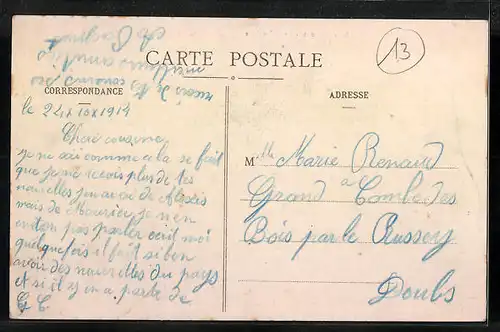 CARTE POSTALE
CORRESPONDANCE
ADRESSE
13
le 24 1914
Chère cousine,
je ne sai comme a la se fait
que je ne recois plus de tes
nouvelles j'en ai de Alexis
mais de Maurice je n'en
enton pas parler
quelquefois il fait si bon
avoir des nouvelles du pays
et si il y en a parte de
M lle Marie Renaud
Grand a Combe des
Bois par le Russey
Doubs